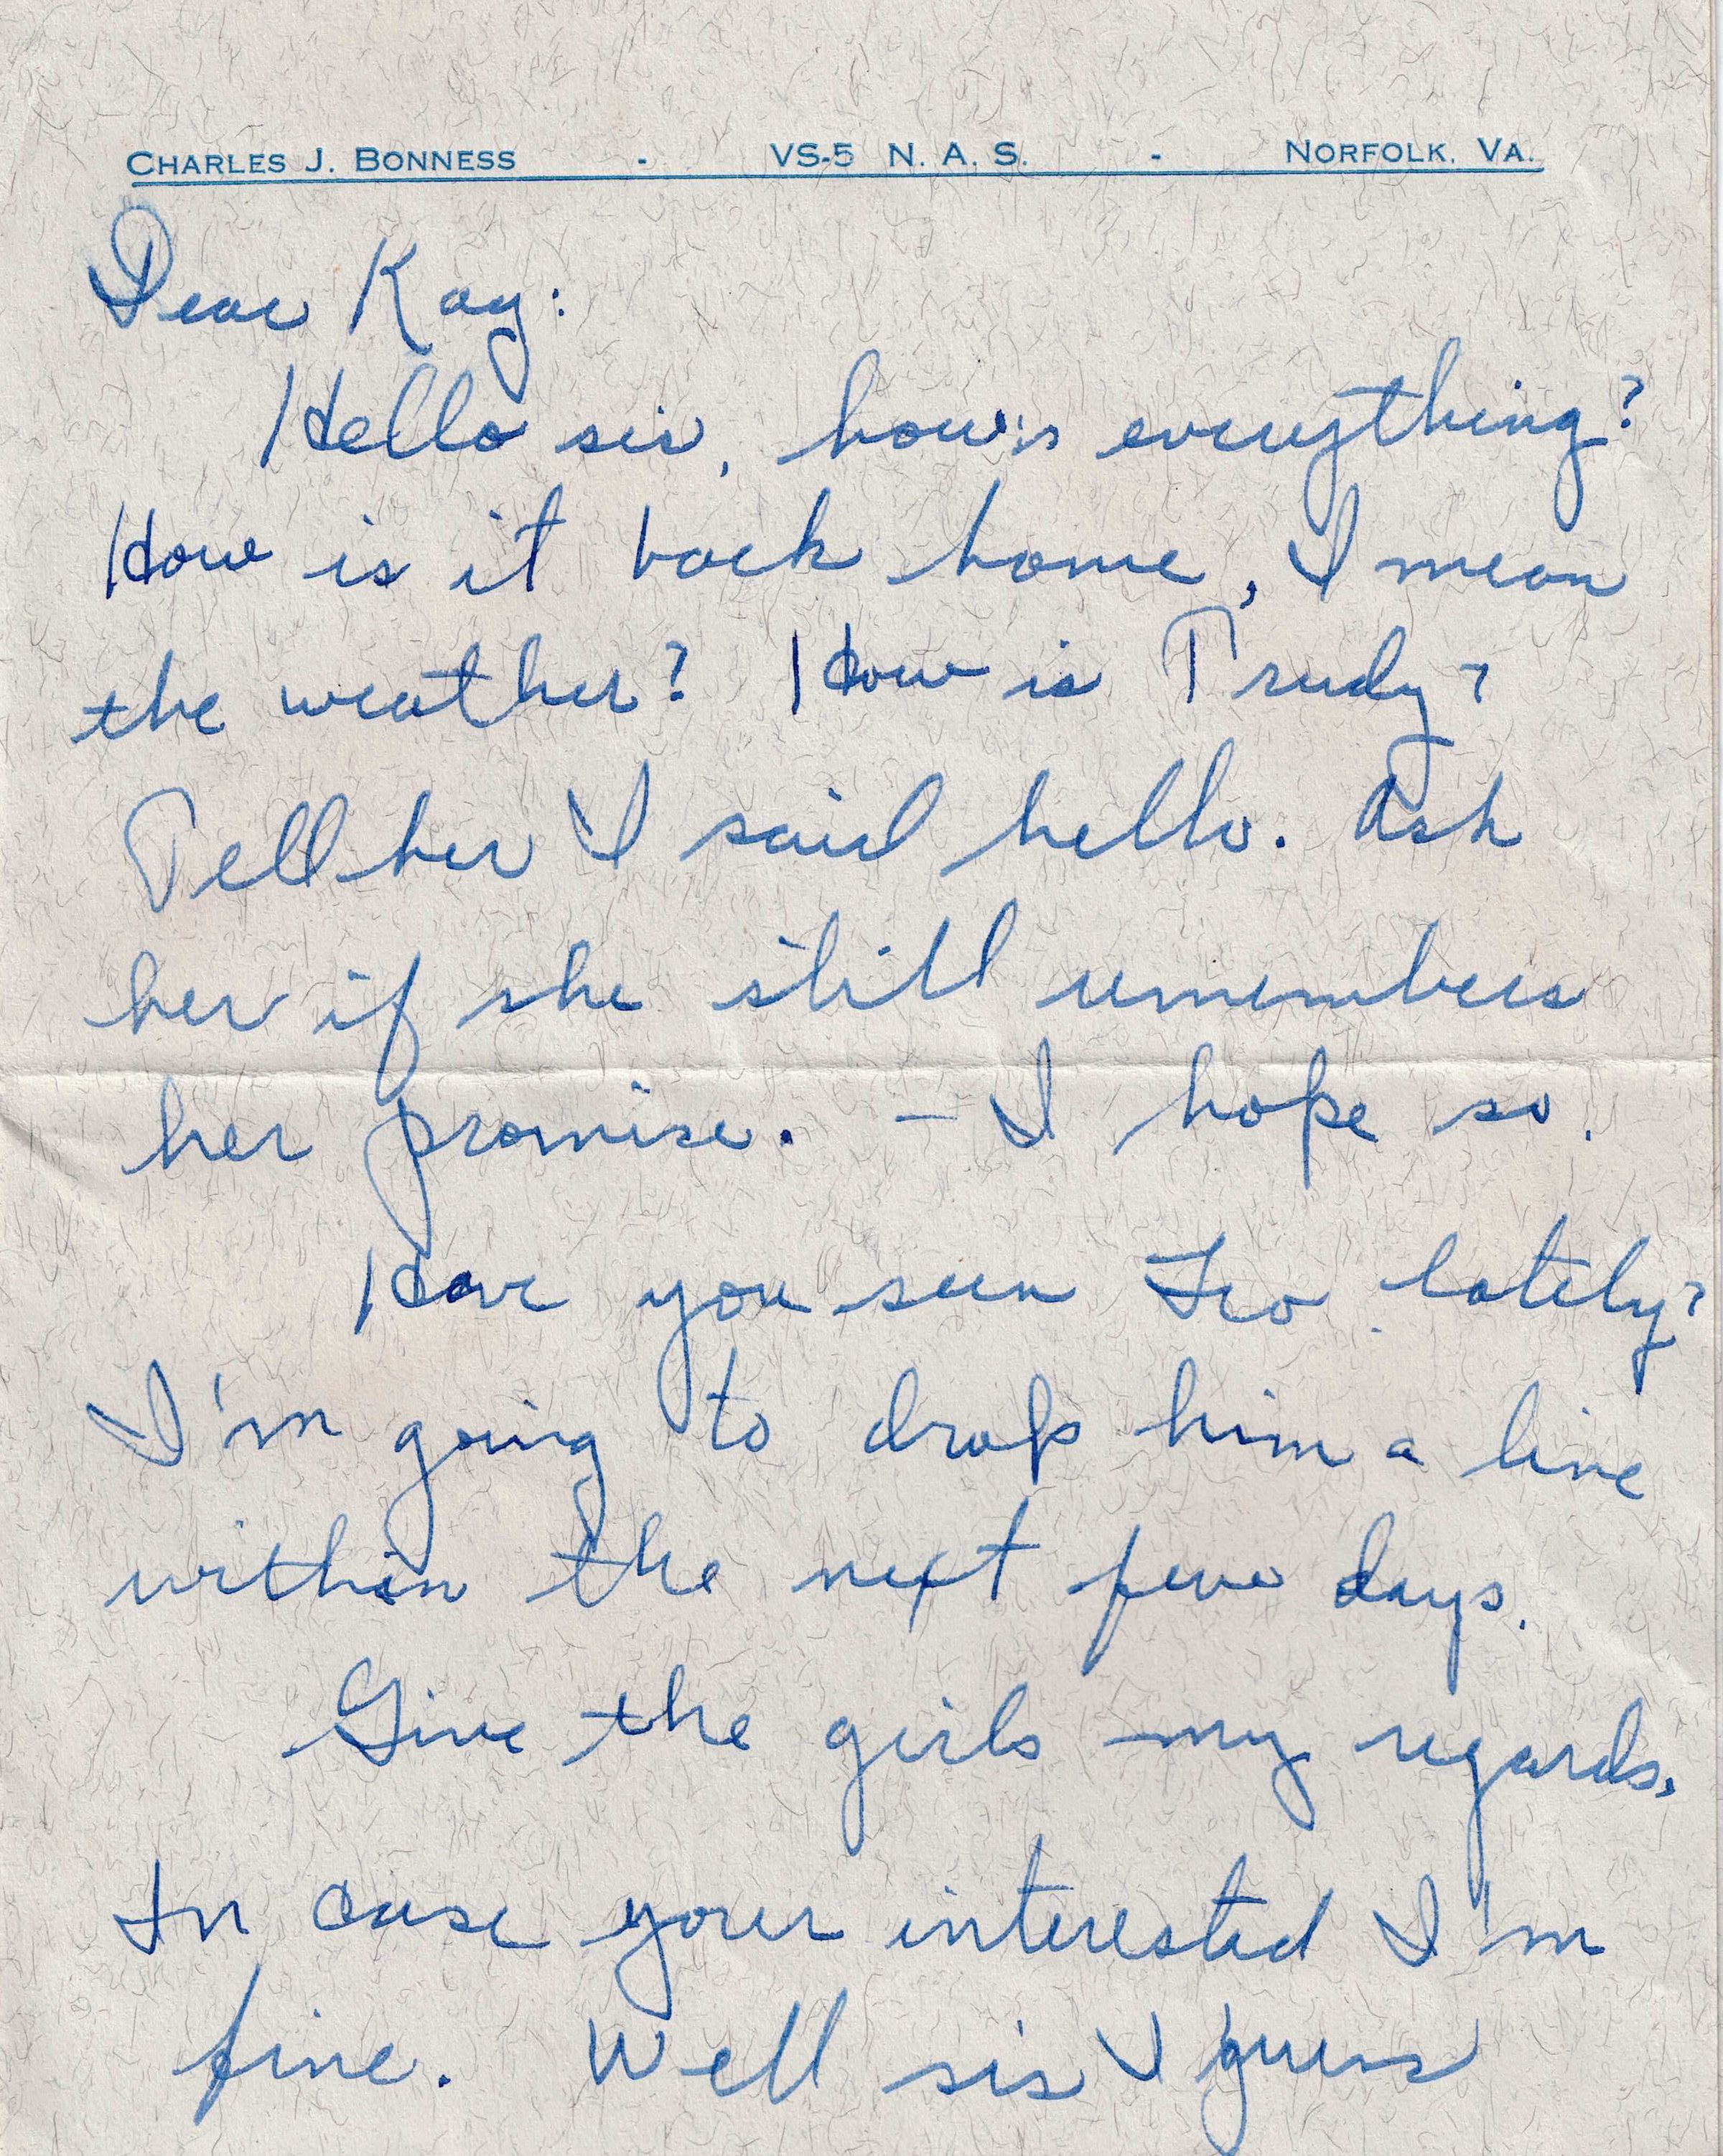 CHARLES J. BONNESS - VS-5 N. A. S. - NORFOLK, VA.
Dear Kay:
Hello sis, how's everything?
How is it back home, I mean
the weather? How is Trudy?
Tell her I said hello. Ask
her if she still remembers
her promise. - I hope so.
Have you seen Leo lately?
I'm going to drop him a line
within the next few days.
Give the girls my regards.
In case your interested I'm
fine. Well sis I guess